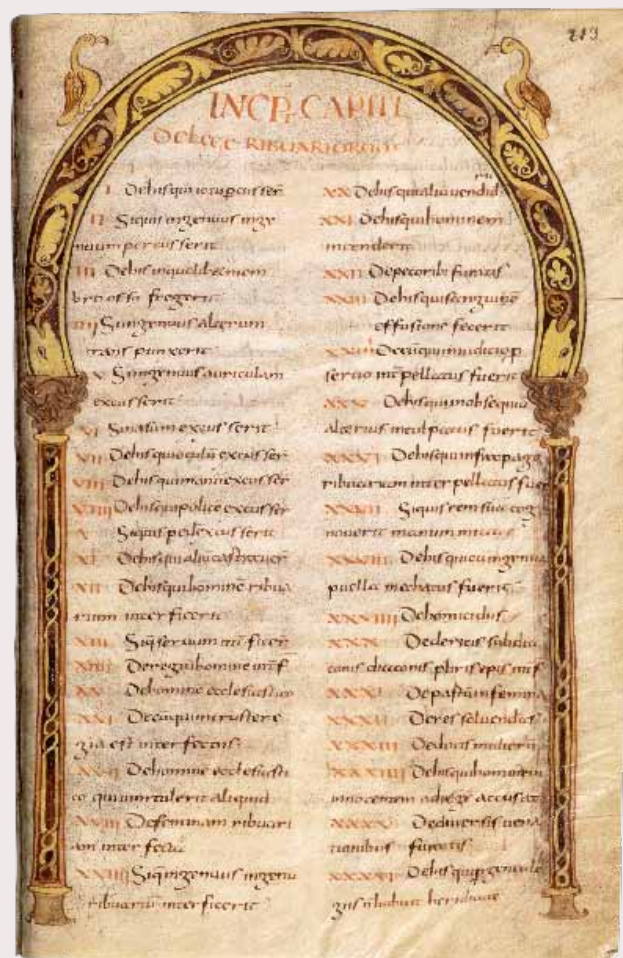 213
INCP̄T CAPITL
De lege RIBUARIORUM
I De his qui ictu percusser
II Siquis ingenuus inge
nuum percusserit
III De his
os fregerit
IIII Si ingenuus alterum
trans punxerit
V Si ingenuus auriculam
excusserit
VI Si nasum excusserit
VII De his qui oculū excusser
VIII De his qui manū excusser
VIIII De his qui police excusser
X Siquis pedē excusserit
XI De his qui aliū castrauer
XII De his qui hominē ribua
rium interficerit
XIII Siq̄ seruum int̄ficer
XIIII De regiū homine int̄f
XV De homine ecclesiastico
XVI De eo qui in
est interfectus
XVII De homine ecclesiasti
co qui intulerit aliquid
XVIII De feminam ribuari
am interfecta
XVIIII Siq̄ ingenuus ingenu
ribuariū interficerit
XX De his qui aliū uendid
XXI De his qui hominem
incenderit
XXII De pecorib furatis
XXIII De his qui sanguine
effusione fecerit
XXIIII De eo qui in iudicio p
seruo int̄pellatus fuerit
XXV De his qui in obsequio
alterius inculpatus fuerit
XXVI De his qui infra pago
ribuarium interpellatus fuer
XXVII Siquis rem sua cog
nouerit manum mittat
XXVIII De his qui cū ingenua
puella mechatus fuerit
XXVIIII De homicidiis
XXX De clericis
XXXI De pastū in femina
XXXII De res soluendas
XXXIII De dotis mulierū
XXXIIII De his qui hominem
innocentem ad rege accusat
XXXV De diuersis uena
tionibus furatis
XXXVI De his qui